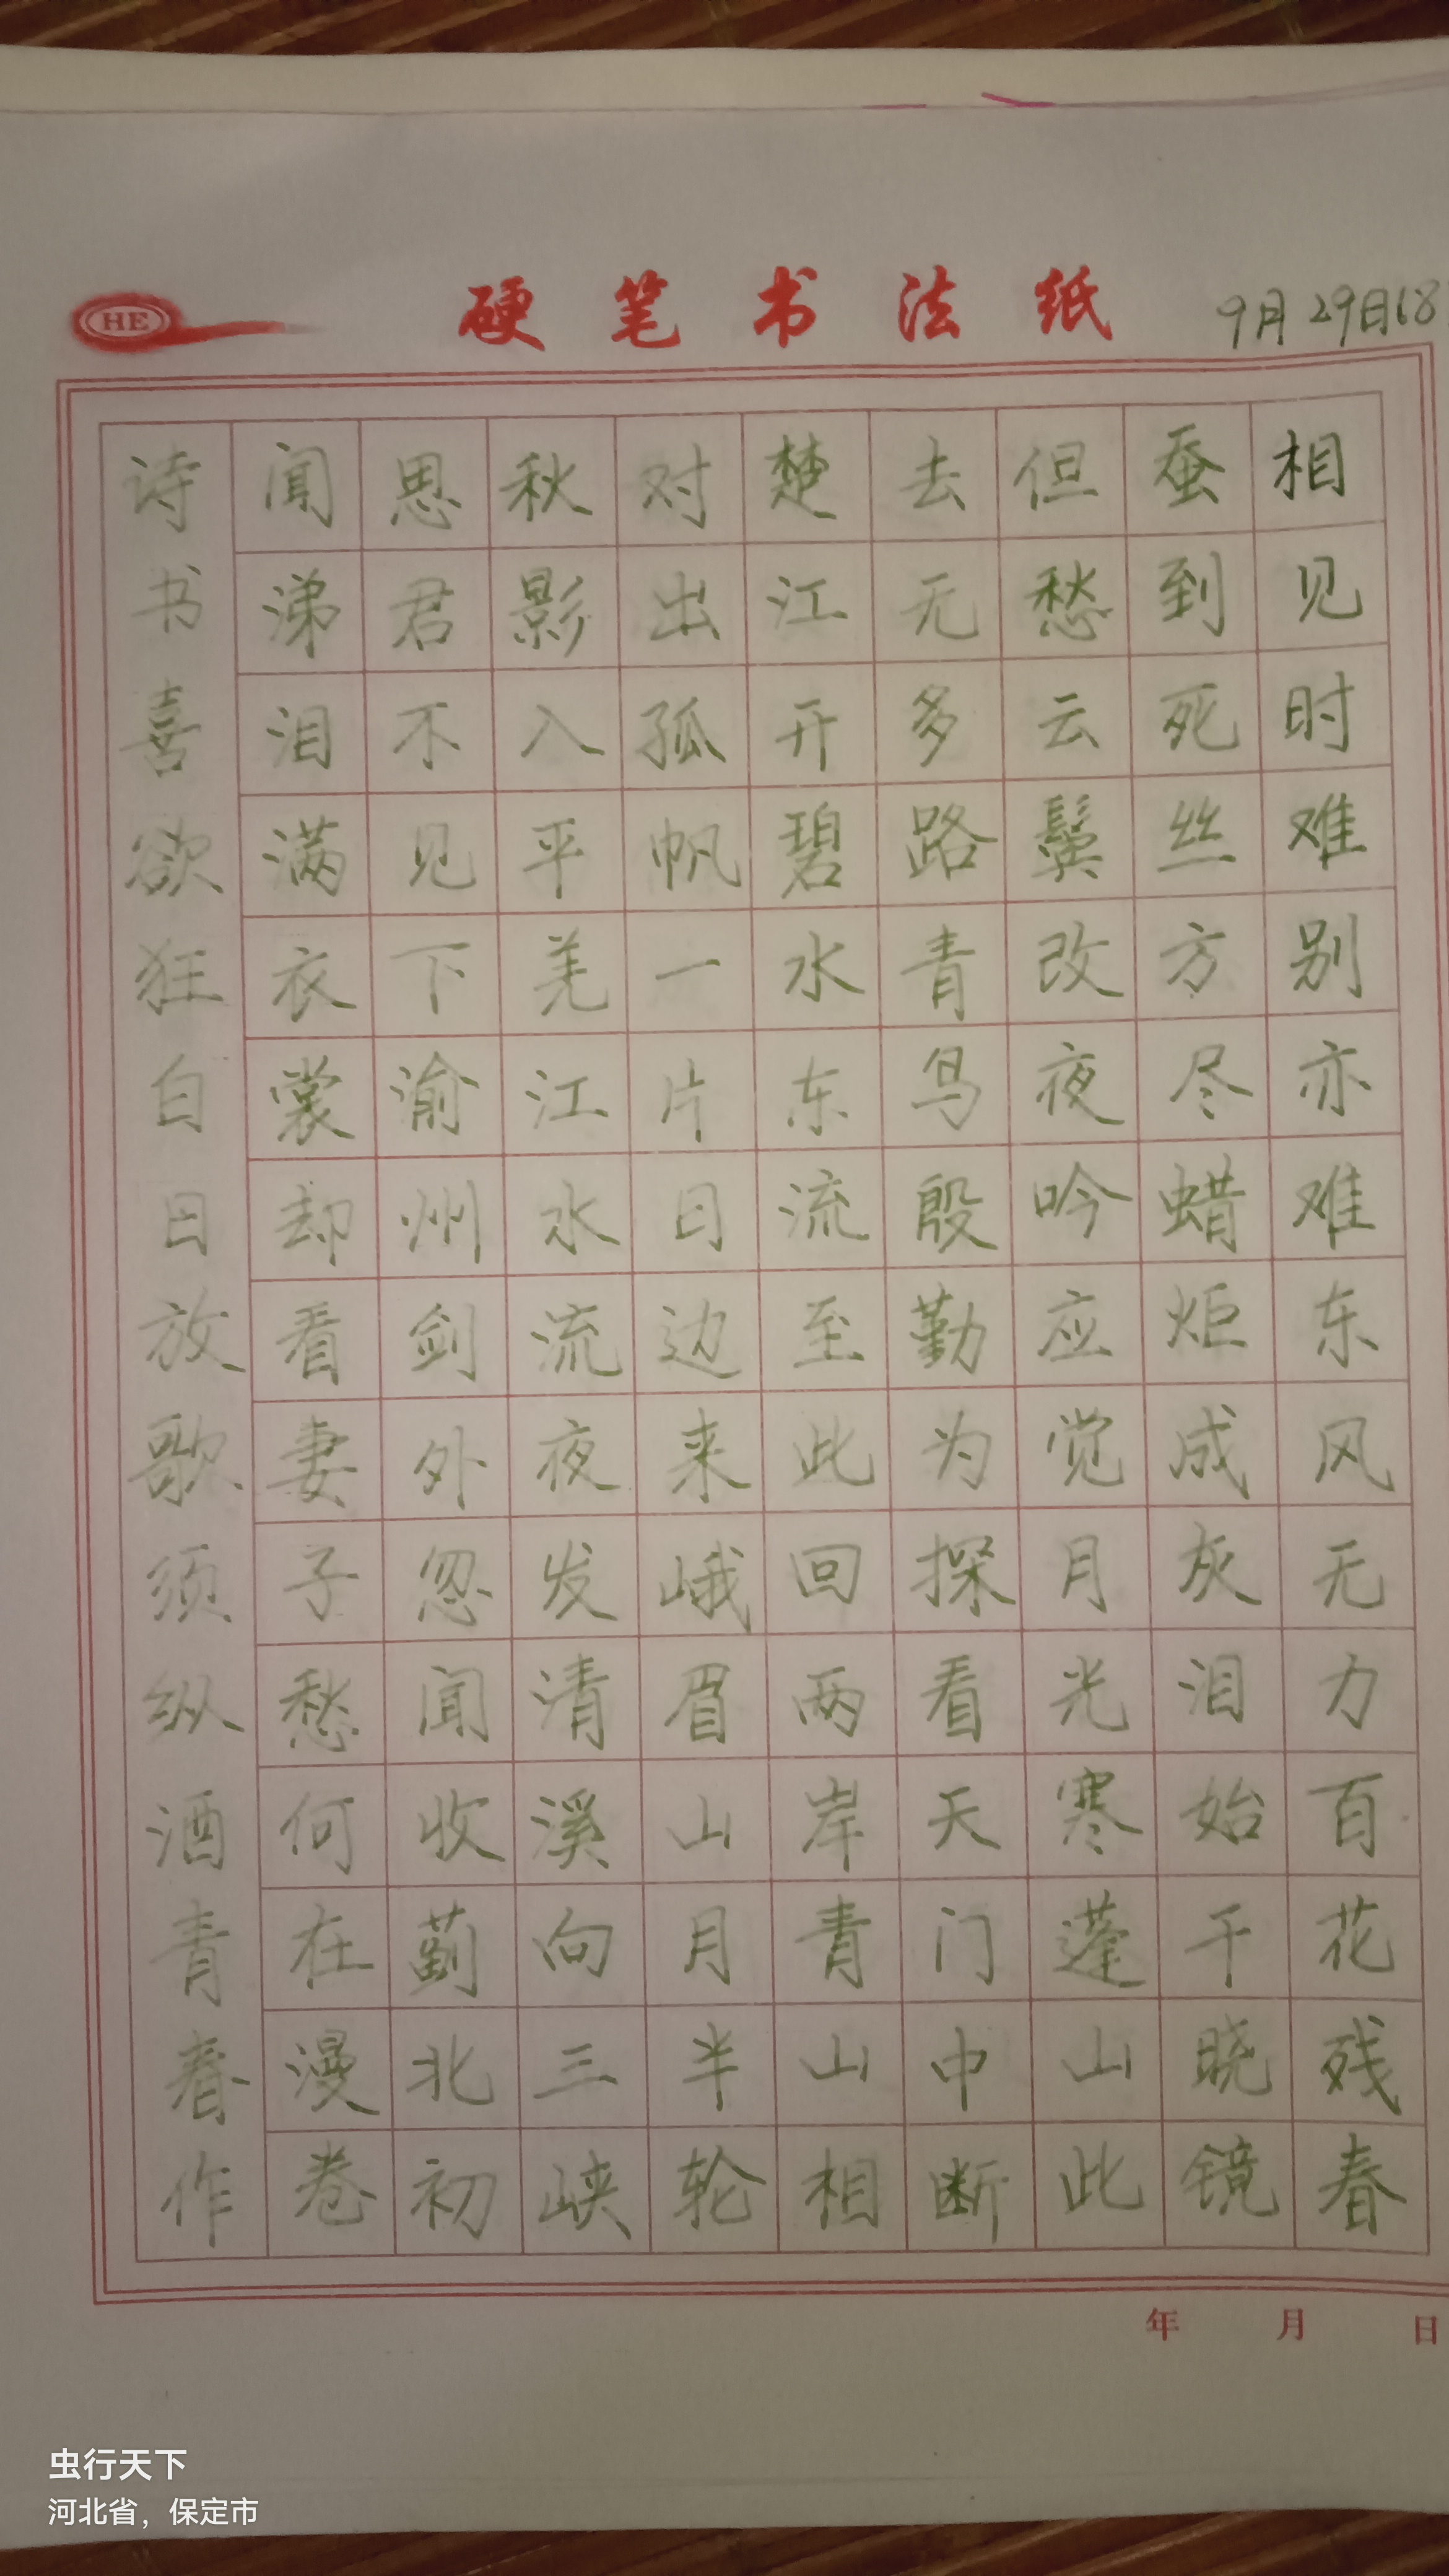 HE
硬笔书法纸
9月29日68
相见时难别亦难东风无力百花残春
蚕到死丝方尽蜡炬成灰泪始干晓镜
但愁云鬓改夜吟应觉月光寒蓬山此
去无多路青鸟殷勤为探看天门中断
楚江开碧水东流至此回两岸青山相
对出孤帆一片日边来峨眉山月半轮
秋影入平羌江水流夜发清溪向三峡
思君不见下渝州剑外忽闻收蓟北初
闻涕泪满衣裳却看妻子愁何在漫卷
诗书喜欲狂白日放歌须纵酒青春作
年 月 日
虫行天下
河北省，保定市